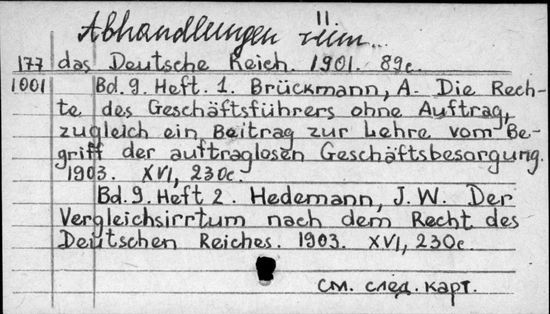 Abhandlungen
177 das Deutsche Reich. 1901. 89c.
1001 Bd. 9. Heft. 1. Brückmann, A. Die Rech-
te des Geschäftsführers ohne Auftrag,
zugleich ein Beitrag zur Lehre vom Be-
griff der auftraglosen Geschäftsbesorgung.
1903. XVI, 230c.
Bd. 9. Heft 2. Hedemann, J. W. Der
Vergleichsirrtum nach dem Recht des
Deutschen Reiches. 1903. XVI, 230c
см. след. карт.